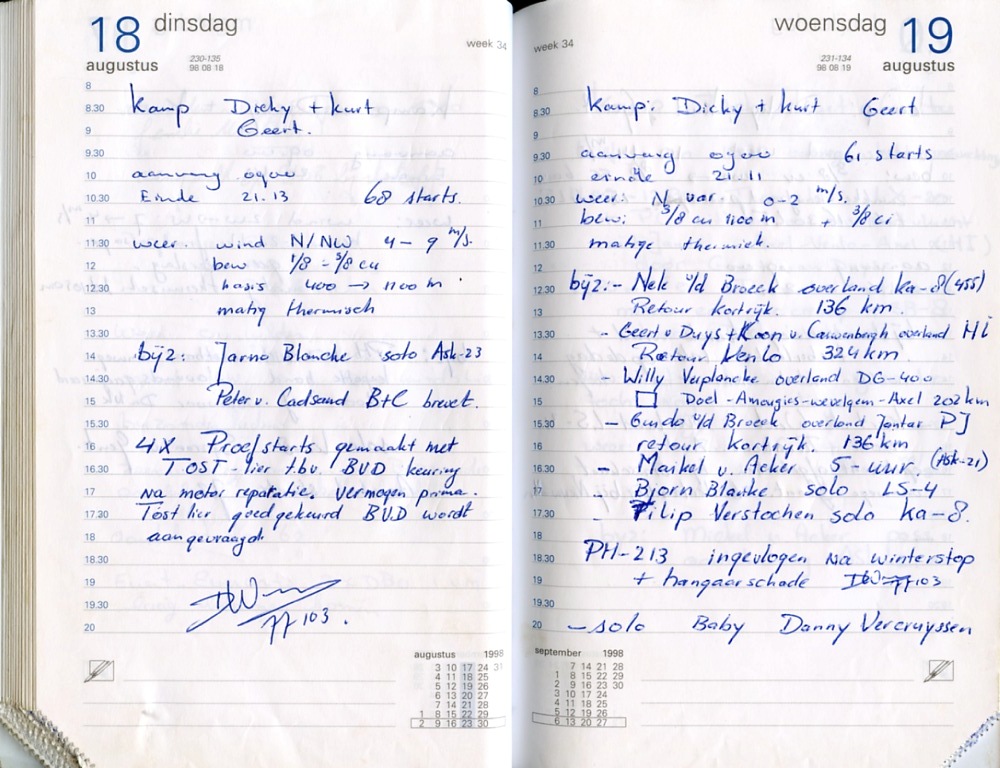 18 dinsdag
augustus
230-135
98 08 18
week 34
8
8.30 Kamp Dicky + Kurt
9 Geert.
9.30
10 aanvang 09uu
10.30 Einde 21.13 68 starts.
11
11.30 weer. wind N/NW 4 - 9 m/s.
12 bew 1/8 - 3/8 cu
12.30 basis 400 → 1100 m
13 matig thermisch
13.30
14 bijz: Jarno Blancke solo Ask-23
14.30
15 Peter v. Cadsand B+C brevet.
15.30
16 4X Proefstarts gemaakt met
16.30 TOST-lier t.b.v. BVD keuring
17 na motor reparatie. vermogen prima.
17.30 Tost lier goedgekeurd BVD wordt
18 aangevraagd.
18.30
19
19.30 103.
20
augustus 1998
3 10 17 24 31
4 11 18 25
5 12 19 26
6 13 20 27
7 14 21 28
1 8 15 22 29
2 9 16 23 30
woensdag 19
augustus
231-134
98 08 19
week 34
8
8.30 Kamp: Dicky + Kurt Geert.
9
9.30 aanvang 09uu 61 starts
10 einde 21.11
10.30 weer: N var. 0-2 m/s.
11 bew: 3/8 cu 1100 m + 3/8 ci
11.30 matige thermiek.
12
12.30 bijz:- Nele v/d Broeck overland Ka-8 (455)
13 Retour Kortrijk. 136 km.
13.30 - Geert v Duys + Koen v. Cauwenbergh overland
14 Retour Venlo 324 km.
14.30 - Willy Verplancke overland DG-400
15 Doel - Amougies - wevelgem - Axel 202 km
15.30 - Guido v/d Broeck overland Jantar PJ
16 retour Kortrijk. 136 km
16.30 - Maikel v. Acker 5-uur. (Ask-21)
17 - Bjorn Blanke solo LS-4
17.30 - Filip Verstochen solo Ka-8.
18
18.30 PH-213 ingevlogen na winterstop
19 + hangaarschade 103
19.30
20 - solo Baby Danny Vercruyssen
september 1998
7 14 21 28
1 8 15 22 29
2 9 16 23 30
3 10 17 24
4 11 18 25
5 12 19 26
6 13 20 27